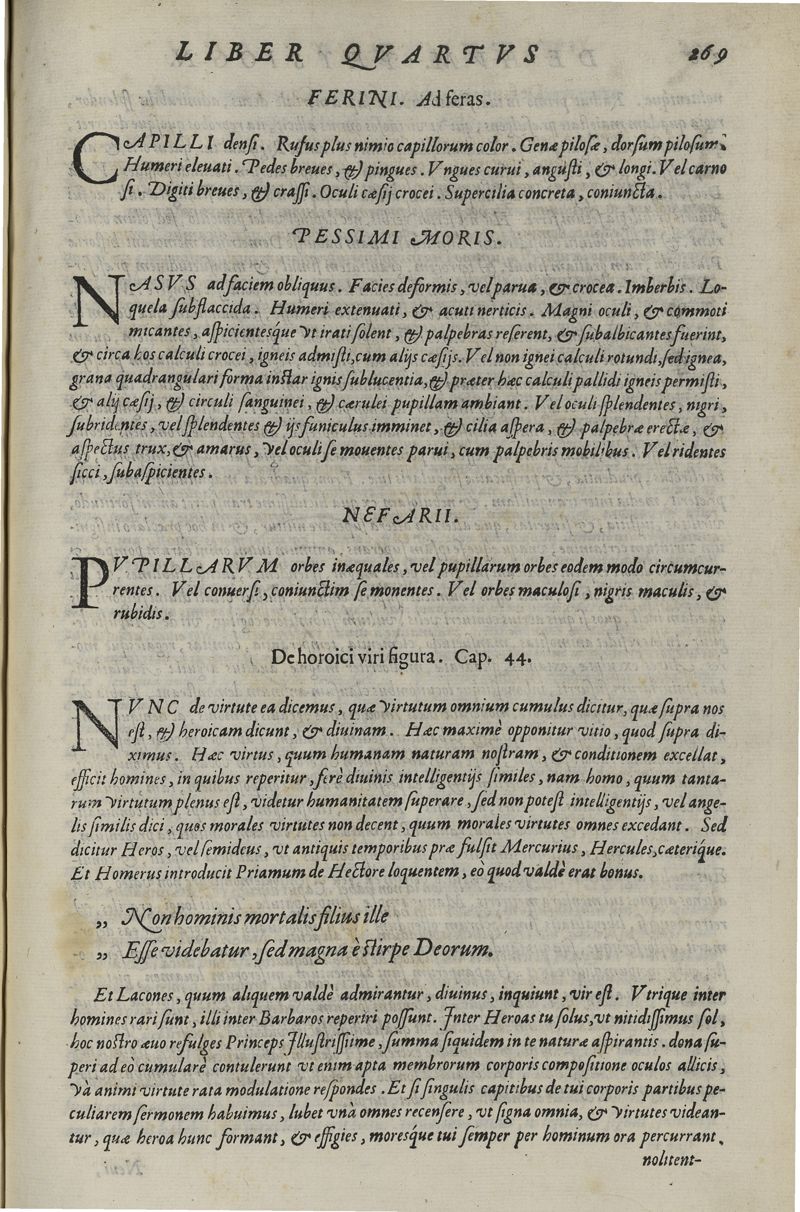 LIBER QVARTVS 269
FERINI. Ad feras.
CAPILLI densi. Rufus plus nimio capillorum color. Genæ pilosæ, dorsum pilosum.
Humeri eleuati. Pedes breues, & pingues. Vngues curui, angusti, & longi. Vel carno
si. Digiti breues, & crassi. Oculi cæsij crocei. Supercilia concreta, coniuncta.
PESSIMI MORIS.
NASVS ad faciem obliquus. Facies deformis, vel parua, & crocea. Imberbis. Lo-
quela subflaccida. Humeri extenuati, & acuti uerticis. Magni oculi, & commoti
micantes, aspicientesque vt irati solent, & palpebras reserent, & subalbicantes fuerint,
& circa hos calculi crocei, igneis admisti, cum alijs cæsijs. Vel non ignei calculi rotundi, sed ignea,
grana quadrangulari forma instar ignis sublucentia, & præter hæc calculi pallidi igneis permisti,
& alij cæsij, & circuli sanguinei, & cærulei pupillam ambiant. Vel oculi splendentes, nigri,
subridentes, vel splendentes & ijs funiculus imminet, & cilia aspera, & palpebræ erectæ, &
aspectus trux, & amarus, vel oculi se mouentes parui, cum palpebris mobilibus. Vel ridentes
sicci, subaspicientes.
NEFARII.
PVPILLARVM orbes inæquales, vel pupillarum orbes eodem modo circumcur-
rentes. Vel conuersi, coniunctim se monentes. Vel orbes maculosi, nigris maculis, &
rubidis.
De horoici viri figura. Cap. 44.
NVNC de virtute ea dicemus, quæ virtutum omnium cumulus dicitur, quæ supra nos
est, & heroicam dicunt, & diuinam. Hæc maximè opponitur vitio, quod supra di-
ximus. Hæc virtus, quum humanam naturam nostram, & conditionem excellat,
efficit homines, in quibus reperitur, ferè diuinis intelligentijs similes, nam homo, quum tanta-
rum virtutum plenus est, videtur humanitatem superare, sed non potest intelligentijs, vel ange-
lis similis dici, quos morales virtutes non decent, quum morales virtutes omnes excedant. Sed
dicitur Heros, vel semideus, vt antiquis temporibus præ fulsit Mercurius, Hercules, cæterique.
Et Homerus introducit Priamum de Hectore loquentem, eo quod valdè erat bonus.
„ Non hominis mortalis filius ille
„ Esse videbatur, sed magna è stirpe Deorum.
Et Lacones, quum aliquem valdè admirantur, diuinus, inquiunt, vir est. Vtrique inter
homines rari sunt, illi inter Barbaros reperiri possunt. Inter Heroas tu solus, vt nitidissimus sol,
hoc nostro æuo refulges Princeps Illustrissime, summa siquidem in te naturæ aspirantis. dona su-
peri adeò cumularè contulerunt vt enim apta membrorum corporis compositione oculos allicis,
và animi virtute rata modulatione respondes. Et si singulis capitibus de tui corporis partibus pe-
culiarem sermonem habuimus, lubet vnà omnes recensere, vt signa omnia, & virtutes videan-
tur, quæ heroa hunc formant, & effigies, moresque tui semper per hominum ora percurrant,
nolitent-